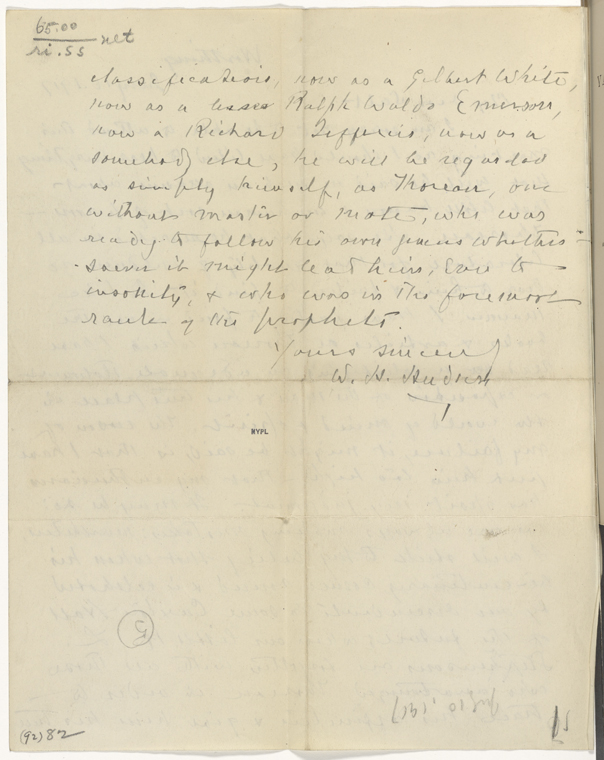 65.00
ri.ss net
classification, now as a Gilbert White,
now as a lesser Ralph Waldo Emerson,
now a Richard Jefferies, now as a
somebody else, he will be regarded
as simply himself, as Thoreau, one
without master or mate, who was
ready to follow his own genius whither-
soever it might lead him, even to
insanity, & who was in the foremost
rank of the prophets.
Yours sincerely
W. H. Hudson
NYPL
5
Jul 10, 1917
15
(92) 82